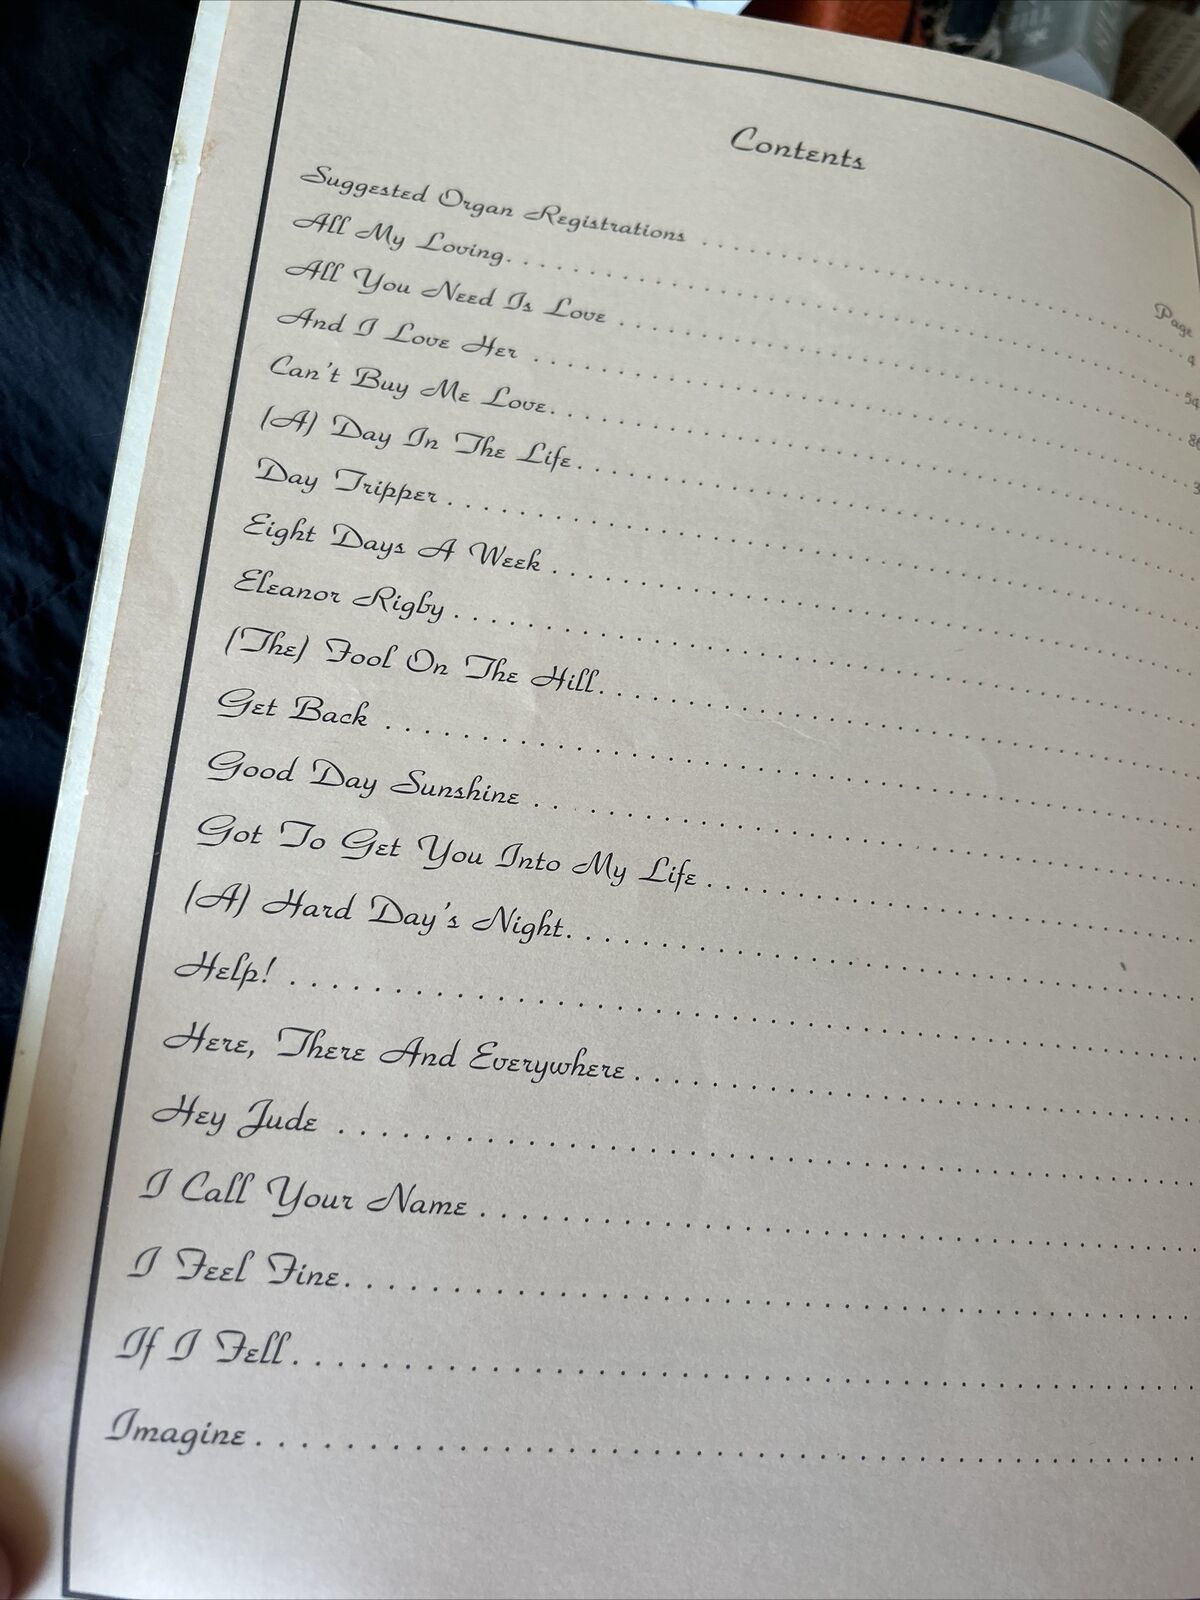 Contents
Page
Suggested Organ Registrations . . . . . . . . . . . . . . . . . . . . . . . . . . . . 4
All My Loving. . . . . . . . . . . . . . . . . . . . . . . . . . . . . . . . . . . . . . 54
All You Need Is Love . . . . . . . . . . . . . . . . . . . . . . . . . . . . . . . .
And I Love Her . . . . . . . . . . . . . . . . . . . . . . . . . . . . . . . . . . . .
Can't Buy Me Love. . . . . . . . . . . . . . . . . . . . . . . . . . . . . . . . .
(A) Day In The Life. . . . . . . . . . . . . . . . . . . . . . . . . . . . . . . . .
Day Tripper . . . . . . . . . . . . . . . . . . . . . . . . . . . . . . . . . . . . . .
Eight Days A Week . . . . . . . . . . . . . . . . . . . . . . . . . . . . . . . .
Eleanor Rigby . . . . . . . . . . . . . . . . . . . . . . . . . . . . . . . . . . . .
(The) Fool On The Hill. . . . . . . . . . . . . . . . . . . . . . . . . . . . . .
Get Back . . . . . . . . . . . . . . . . . . . . . . . . . . . . . . . . . . . . . . .
Good Day Sunshine . . . . . . . . . . . . . . . . . . . . . . . . . . . . . . .
Got To Get You Into My Life . . . . . . . . . . . . . . . . . . . . . . . .
(A) Hard Day's Night. . . . . . . . . . . . . . . . . . . . . . . . . . . . . .
Help! . . . . . . . . . . . . . . . . . . . . . . . . . . . . . . . . . . . . . . . . .
Here, There And Everywhere . . . . . . . . . . . . . . . . . . . . . . . .
Hey Jude . . . . . . . . . . . . . . . . . . . . . . . . . . . . . . . . . . . . . .
I Call Your Name . . . . . . . . . . . . . . . . . . . . . . . . . . . . . . . .
I Feel Fine. . . . . . . . . . . . . . . . . . . . . . . . . . . . . . . . . . . . .
If I Fell. . . . . . . . . . . . . . . . . . . . . . . . . . . . . . . . . . . . . . .
Imagine . . . . . . . . . . . . . . . . . . . . . . . . . . . . . . . . . . . . . .